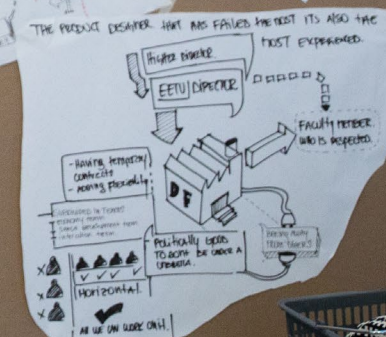 THE PRODUCT DESIGNER THAT HAS FAILED THE MOST ITS ALSO THE
MOST EXPERIENCED.
Higher Director
EETU DIRECTOR
FACULTY MEMBER
who is respected.
- Having temporary
contracts
- Adding flexibility
DF
POLITICALLY GOOD
TO DON'T BE UNDER A
UMBRELLA.
HORIZONTAL.
All WE CAN WORK ON IT.